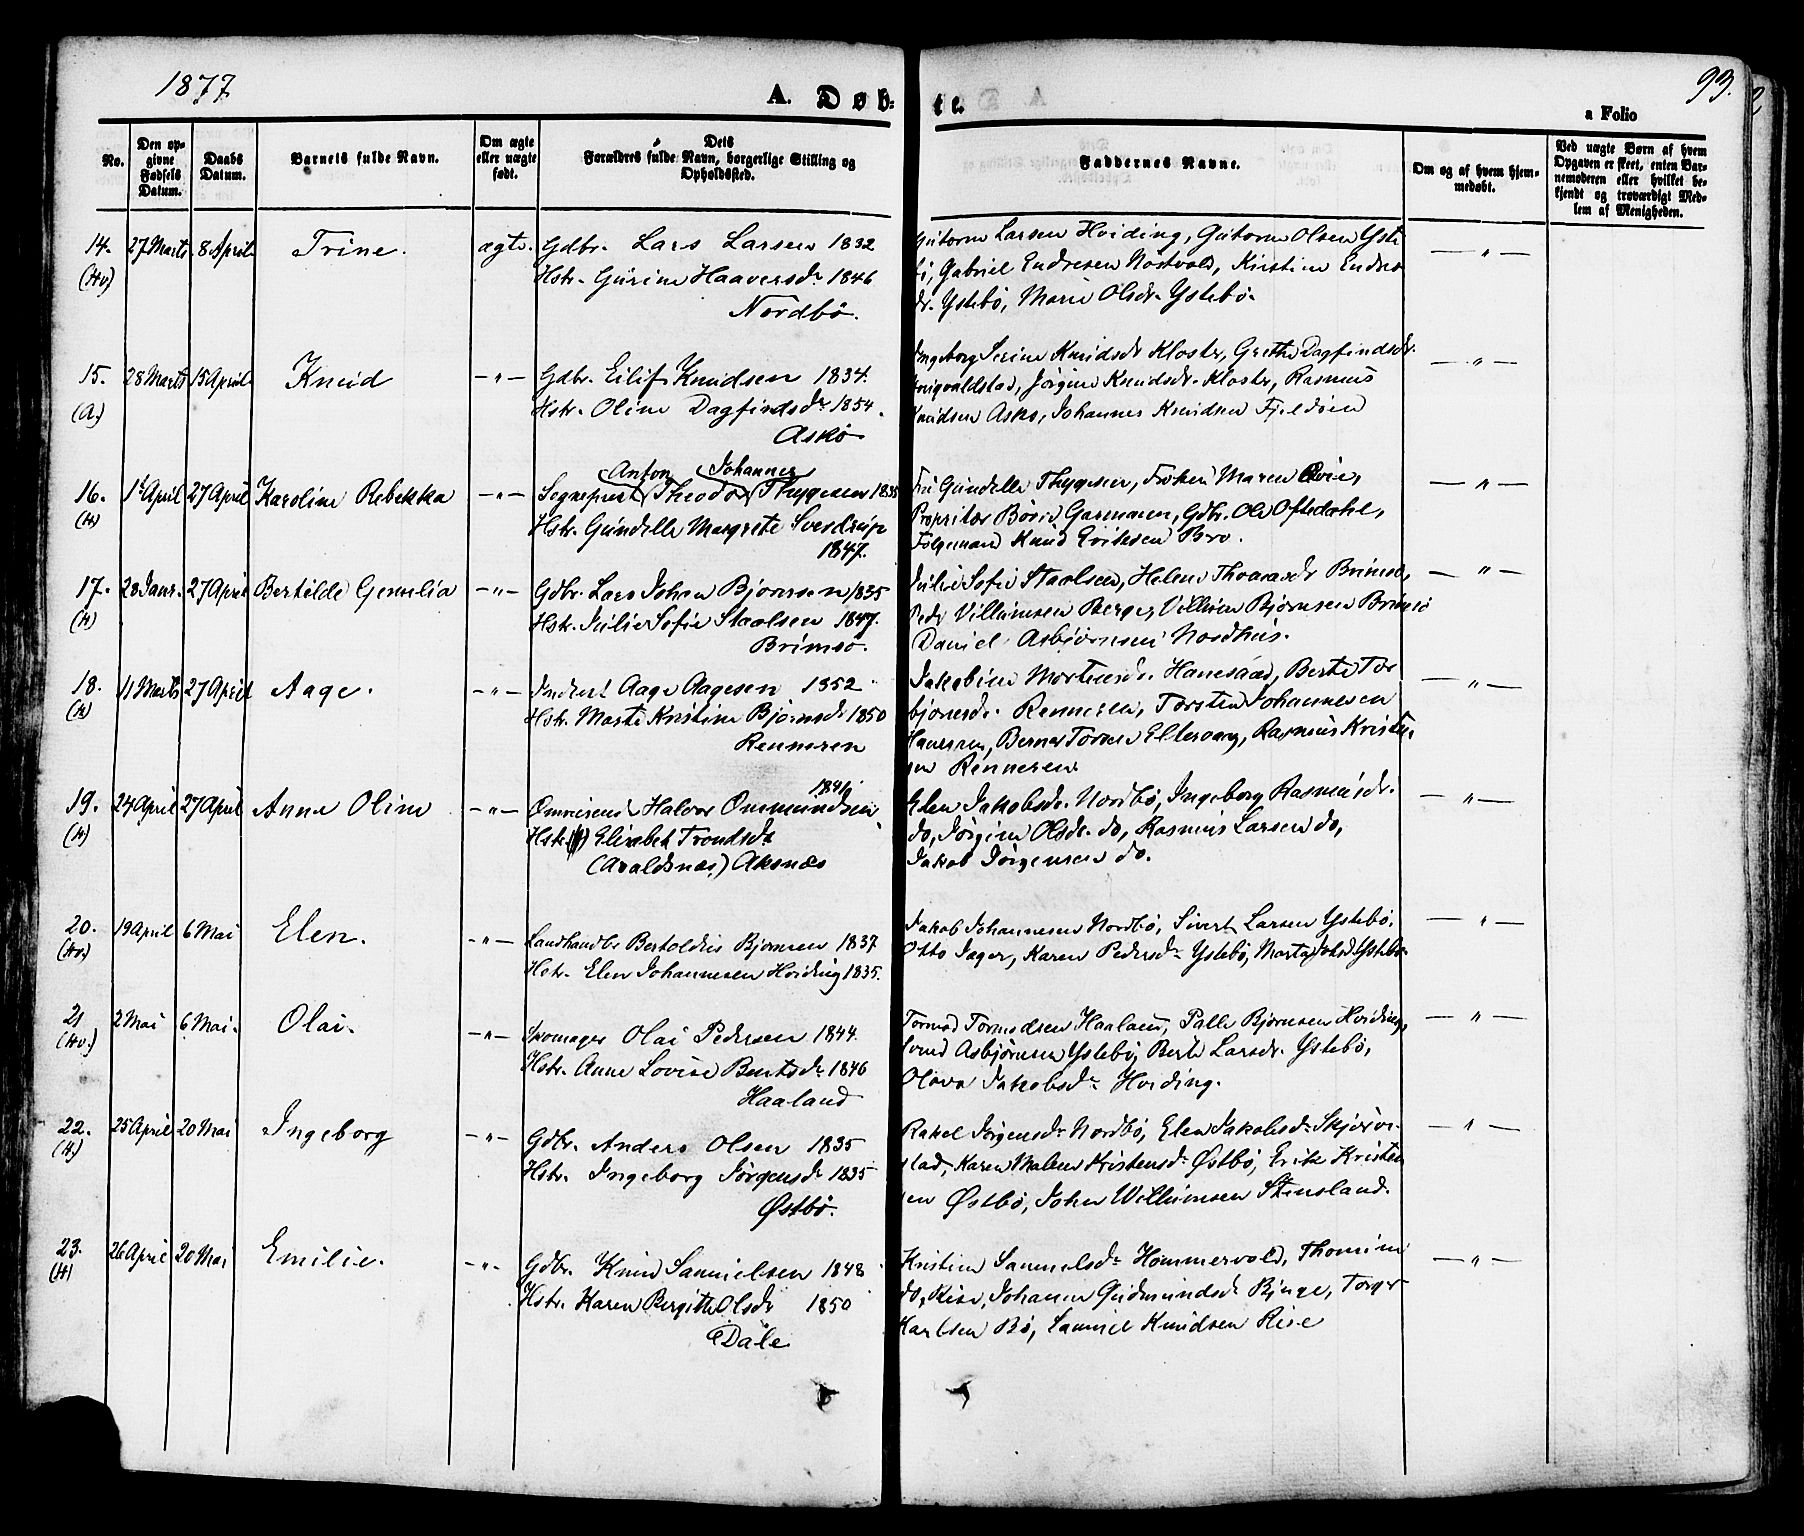 1877
A. Døb-
te.
93.
a Folio
No.
Den op-
givne
Fødsels
Datum.
Daabs
Datum.
Barnets fulde Navn.
Om ægte
eller uægte
født.
Dets
Forældres fulde Navn, borgerlige Stilling og
Opholdssted.
Faddernes Navne.
Om og af hvem hjem-
medøbt.
Ved uægte Børn af hvem
Opgaven er skeet, enten Bar-
nemoderen eller hvilket be-
kjendt og troværdigt Med-
lem af Menigheden.
14. 27 Marts 8 April Trine. ægte. Gdbr. Lars Larsen 1832
(Hv) Hstr. Gurine Haaversdr 1846
Nordbø.
Gutorm Larsen Hviding, Gutorm Olsen Yste
bø, Gabriel Endresen Nostvold, Kristine Endres
dr. Ystebø, Marie Olsdr. Ystebø. — " —
15. 28 Marts 15 April Knud —"— Gdbr. Eilif Knudsen 1834.
(A) Hstr. Oline Dagfindsdr 1854.
Askø
Ingeborg Serine Knudsdr Kloster, Grethe Dagfindsdr.
Jørgine Knudsdr. Kloster, Rasmus
Knudsen Askø, Johannes Knudsen Fjeldøen — " —
16. 1t April 27 April Karoline Rebekka —"— Sognepræst Anton Theodor Johannes Thygesen 1835
(H) Hstr. Gundelle Margrete Sverdrup
1847.
Fru Gundelle Thygesen, Frøken Maren
Propritær Garmann, Gdbr. Ole Oftedahl,
Knud Eriksen Bro. — " —
17. 28 Janr. 27 April Bertilde Gemelia —"— Gdbr. Lars Johan Bjørnsen 1835
(H) Hstr. Julie Sofie Staalsen 1847.
Brimsø.
Julie Sofie Staalsen, Helene Thomasdr Brimsø,
Peder Villumsen Berge, Villum Bjørnsen Brimsø
Daniel Asbjørnsen Nordhus. — " —
18. 11 Marts 27 April Aage. —"— Aage Aagesen 1852
(H) Hstr. Marte Kristine Bjørnsdr 1850
Rennesen
Jakobine Mortensdr. Hanesaad, Berte Tor
bjørnsdr. Rennesen, Torsten Johannesen
Berner Eltervaag, Rasmus Kristen
sen Rennesen — " —
19. 24 April 27 April Anne Oline —"— Halvor Ommundsen 1846
(H) Hstr. Elisabet Trondsdr
(Avaldsnæs) Aksnæs
Elen Jakobsdr. Nordbø, Ingeborg Rasmusdr.
do, Jørgine Olsdr. do, Rasmus Larsen do,
Jakob Jørgensen do. — " —
20. 19 April 6 Mai Elen. —"— Landhandlr Bertoldus Bjørnsen 1837
(Hv) Hstr. Elen Johannesen Hviding 1835.
Jakob Johannesen Nordbø, Sivert Larsen Ystebø.
Otto Jager, Karen Pedersdr Ystebø, Marta Ystebø — " —
21 2 Mai 6 Mai. Olai. —"— Skomager Olai Pedersen 1844.
(Hv.) Hstr. Anne Lovise Bentsdr 1846
Haaland
Tormod Tormodsen Haaland, Palle Bjørnsen Hviding,
Asbjørnsen Ystebø, Berte Larsdr. Ystebø,
Olava Jakobsdr Hviding. — " —
22. 25 April 20 Mai Ingeborg —"— Gdbr. Anders Olsen 1835
(H) Hstr. Ingeborg Jørgensdr 1835
Østbø.
Rakel Jørgensdr Nordbø, Elen Jakobsdr Skjørve
stad, Karen Malene Kristensdr Østbø, Erik Kristen
sen Østbø, John Willumsen Stensland. — " —
23. 26 April 20 Mai Emilie. —"— Gdbr. Knud Samuelsen 1848
(H) Hstr. Karen Bergitte Olsdr 1850
Dale
Kristine Samuelsdr Hommervold, Thomine
do, Rise, Johanne Gudmundsdr Bjuge, Torger
Karlsen Bø, Samuel Knudsen Rise — " —